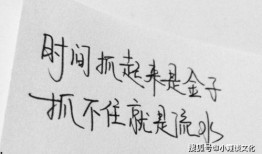 时间抓起来是金子
抓不住就是流水
搜狐号@小凝谈文化